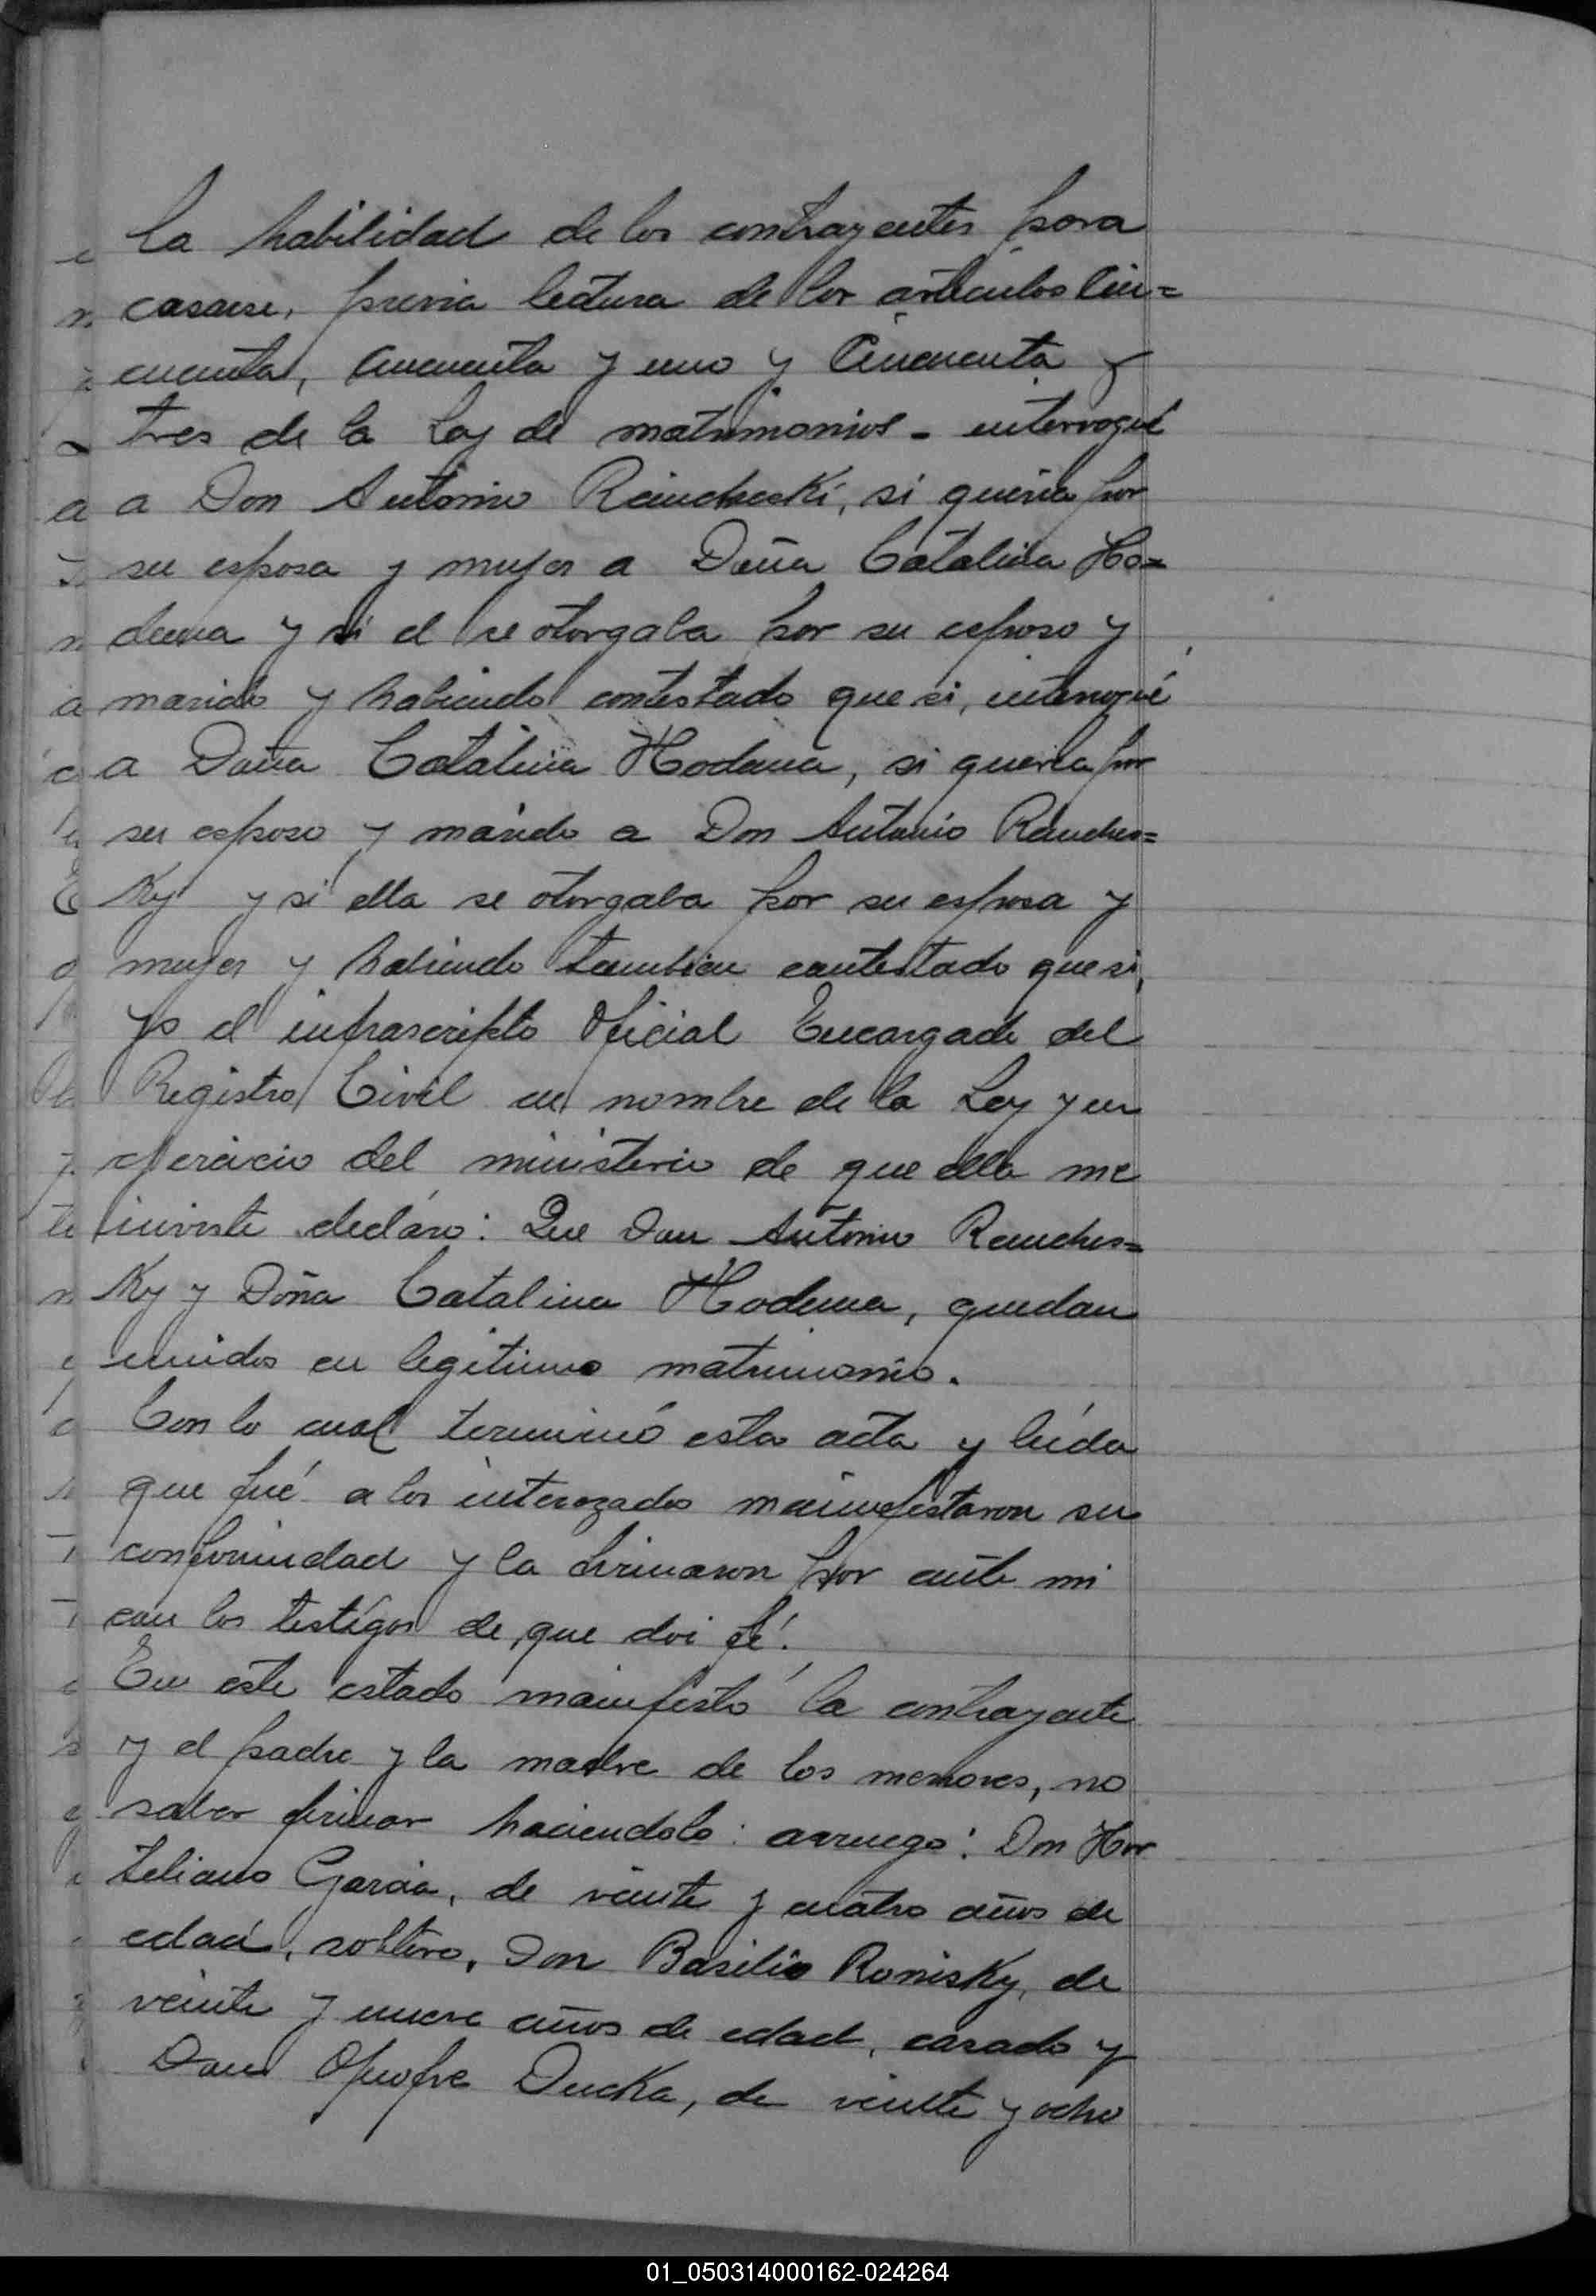 la habilidad de los contrayentes para
casarse, previa lectura de los articulos Cin=
cuenta, cincuenta y uno y Cincuenta y
tres de la Ley de matrimonios - interrogué
a Don Antonio Raucheski, si queria por
su esposa y mujer a Doña Catalina Ho=
dema y si el se otorgaba por su esposo y
marido y habiendo contestado que si, interrogué
a Doña Catalina Hodema, si queria por
su esposo y marido a Don Antonio Rauches=
Ky y si ella se otorgaba por su esposa y
mujer y habiendo tambien contestado que si,
yo el infrascripto Oficial Encargado del
Registro Civil en nombre de la Ley y en
ejercicio del ministerio de que ella me
inviste declaro: Que Don Antonio Rauches=
Ky y Doña Catalina Hodema, quedan
unidos en legitimo matrimonio.
Con lo cual terminó esta acta y leída
que fué a los interezados mainifestaron su
conformidad y la firmaron por ante mi
con los testígos de que doi fé.
En este estado manifestó la contrayente
y el padre y la madre de los menores, no
saber firmar haciendolo: arruego: Don Hor
teliano Garcia, de veinte y cuatro años de
edad, soltero, Don Basilio Ronisky, de
veinte y nueve años de edad, casado y
Don Onofre Ducka, de veinte y ocho
01_050314000162-024264